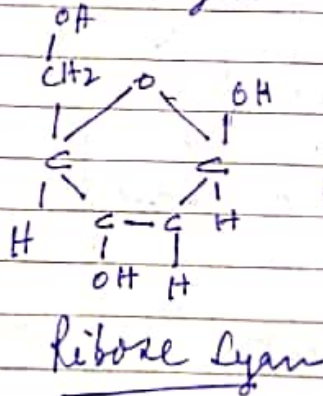 OH
CH2 O OH
C C
H C — C H
OH H
Ribose